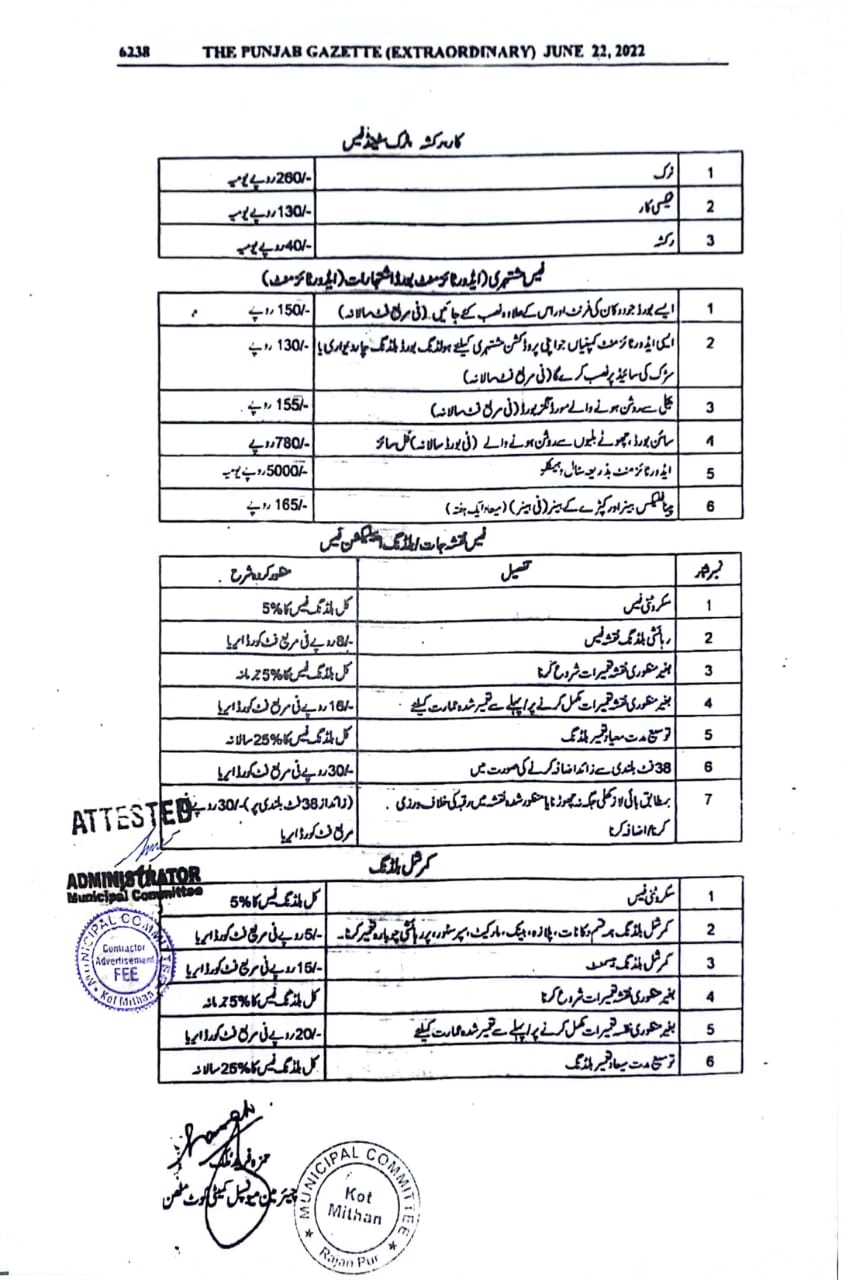 6238 THE PUNJAB GAZETTE (EXTRAORDINARY) JUNE 22, 2022
کار، رکشہ، ٹرک سٹینڈ فیس
1 ٹرک 260/- روپے یومیہ
2 ٹیکسی کار 130/- روپے یومیہ
3 رکشہ 40/- روپے یومیہ
فیس مشتہری (ایڈورٹائزمنٹ بورڈ اشتہارات (ایڈورٹائزمنٹ)
1 ایسے بورڈ جو دوکان کی فرنٹ اور اس کے علاوہ نصب کئے جائیں۔ (فی مربع فٹ سالانہ) 150/- روپے
2 ایسی ایڈورٹائزمنٹ کمپنیاں جو اپنی پروڈکشن مشتہری کیلئے ہولڈنگ بورڈ بلڈنگ چار دیواری یا 130/- روپے
سڑک کی سائیڈ پر نصب کرے گا (فی مربع فٹ سالانہ)
3 بجلی سے روشن ہونے والے بورڈ (فی مربع فٹ سالانہ) 155/- روپے
4 سائن بورڈ، چھوٹے بلبوں سے روشن ہونے والے (فی بورڈ سالانہ) فل سائز 780/- روپے
5 ایڈورٹائزمنٹ بذریعہ سٹال، 5000/- روپے یومیہ
6 پینافلیکس بینر اور کپڑے کے بینر (فی بینر) (میعاد ایک ہفتہ) 165/- روپے
فیس نقشہ جات / بلڈنگ انسپکشن فیس
نمبر شمار تفصیل منظور کردہ شرح
1 سکروٹنی فیس کل بلڈنگ فیس کا 5%
2 رہائشی بلڈنگ نقشہ فیس 8/- روپے فی مربع فٹ کورڈ ایریا
3 بغیر منظوری نقشہ تعمیرات شروع کرنا کل بلڈنگ فیس کا 5% جرمانہ
4 بغیر منظوری نقشہ تعمیرات مکمل کرنے پر / پہلے سے تعمیر شدہ عمارت کیلئے 16/- روپے فی مربع فٹ کورڈ ایریا
5 توسیع مدت میعاد تعمیر بلڈنگ کل بلڈنگ فیس کا 25% سالانہ
6 38 فٹ بلندی سے زائد اضافہ کرنے کی صورت میں 30/- روپے فی مربع فٹ کورڈ ایریا
7 بمطابق بائی لاز کھلی جگہ نہ چھوڑنا یا منظور شدہ نقشہ میں رقبہ کی خلاف ورزی (زائد از 38 فٹ بلندی پر) 30/- روپے
کرنا / اضافہ کرنا مربع فٹ کورڈ ایریا
ATTESTED
ADMINISTRATOR
Municipal Committee
MUNICIPAL COMMITTEE
Contractor
Advertisement
FEE
Kot Mithan
کمرشل بلڈنگ
1 سکروٹنی فیس کل بلڈنگ فیس کا 5%
2 کمرشل بلڈنگ ہمہ قسم دکانات، پلازہ، بینک، مارکیٹ، سپر سٹور، پر رہائشی چوبارہ تعمیر کرنا۔ 5/- روپے فی مربع فٹ کورڈ ایریا
3 کمرشل بلڈنگ بیسمنٹ 15/- روپے فی مربع فٹ کورڈ ایریا
4 بغیر منظوری نقشہ تعمیرات شروع کرنا کل بلڈنگ فیس کا 5% جرمانہ
5 بغیر منظوری نقشہ تعمیرات مکمل کرنے پر / پہلے سے تعمیر شدہ عمارت کیلئے 20/- روپے فی مربع فٹ کورڈ ایریا
6 توسیع مدت میعاد تعمیر بلڈنگ کل بلڈنگ فیس کا 25% سالانہ
حمزہ فرید ملک
چیئرمین میونسپل کمیٹی کوٹ مٹھن
MUNICIPAL COMMITTEE
Kot
Mithan
Rajan Pur